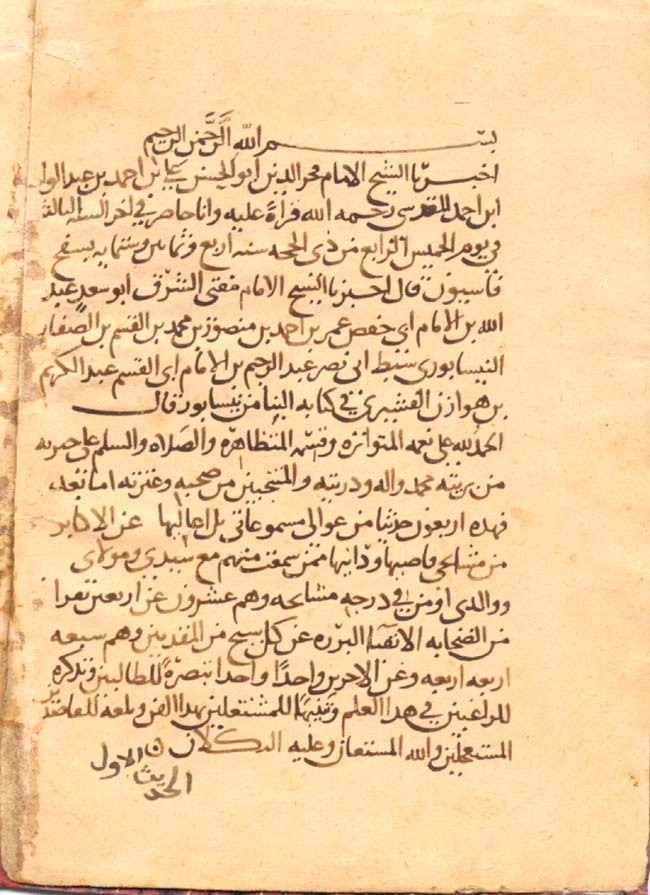 بسم الله الرحمن الرحيم
اخبرنا الشيخ الامام فخر الدين ابو الحسن علي بن احمد بن عبد الواحد
ابن احمد المقدسي رحمه الله قراة عليه وانا حاضر في اخر السنه الثالثة
في يوم الخميس الرابع من ذي الحجه سنه اربع وثمانين وستمايه بسفح
قاسيون قال اخبرنا الشيخ الامام مفتي الشرق ابو سعد عبد
الله بن الامام ابي حفص عمر بن احمد بن منصور بن محمد بن القسم بن الصفار
النيسابوري سبط ابي نصر عبد الرحيم بن الامام ابي القسم عبد الكريم
بن هوازن القشيري في كتابه الينا من نيسابور قال
الحمد لله على نعمه المتواتره المتظاهره والصلاه والسلم على خيرته
من بريته محمد واله وذريته والمنتجبين من صحبه وعترته اما بعد
فهذه اربعون حديثا من عوالي مسموعاتي بل اعاليها عن الاكابر
من مشايخي قاصيها ودانيها ممن سمعت منهم مع سيدي ومولاي
ووالدي او من في درجه مشايخه وهم عشرون عن اربعين نفرا
من الصحابه الاتقيا البرره عن كل شيخ من المقدمين وهم سبعه
اربعه اربعه وعن الاخرين واحدا واحدا تبصرة للطالبين وتذكره
للراغبين في هذا العلم وتنبيها للمشتغلين بهذا الفن وبلغه للقاصدين
المستعجلين والله المستعان وعليه التكلان
الحديث الاول